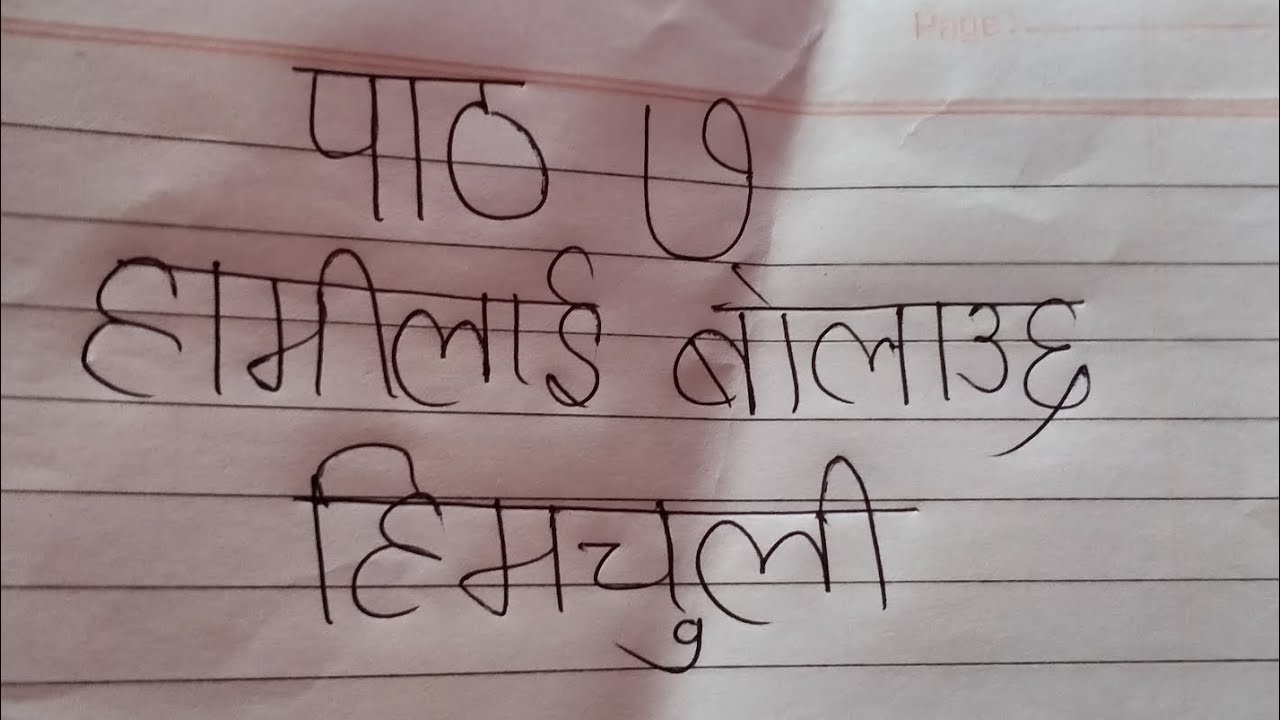 Page:
पाठ ७
हामीलाई बोलाउछ
हिमचुली